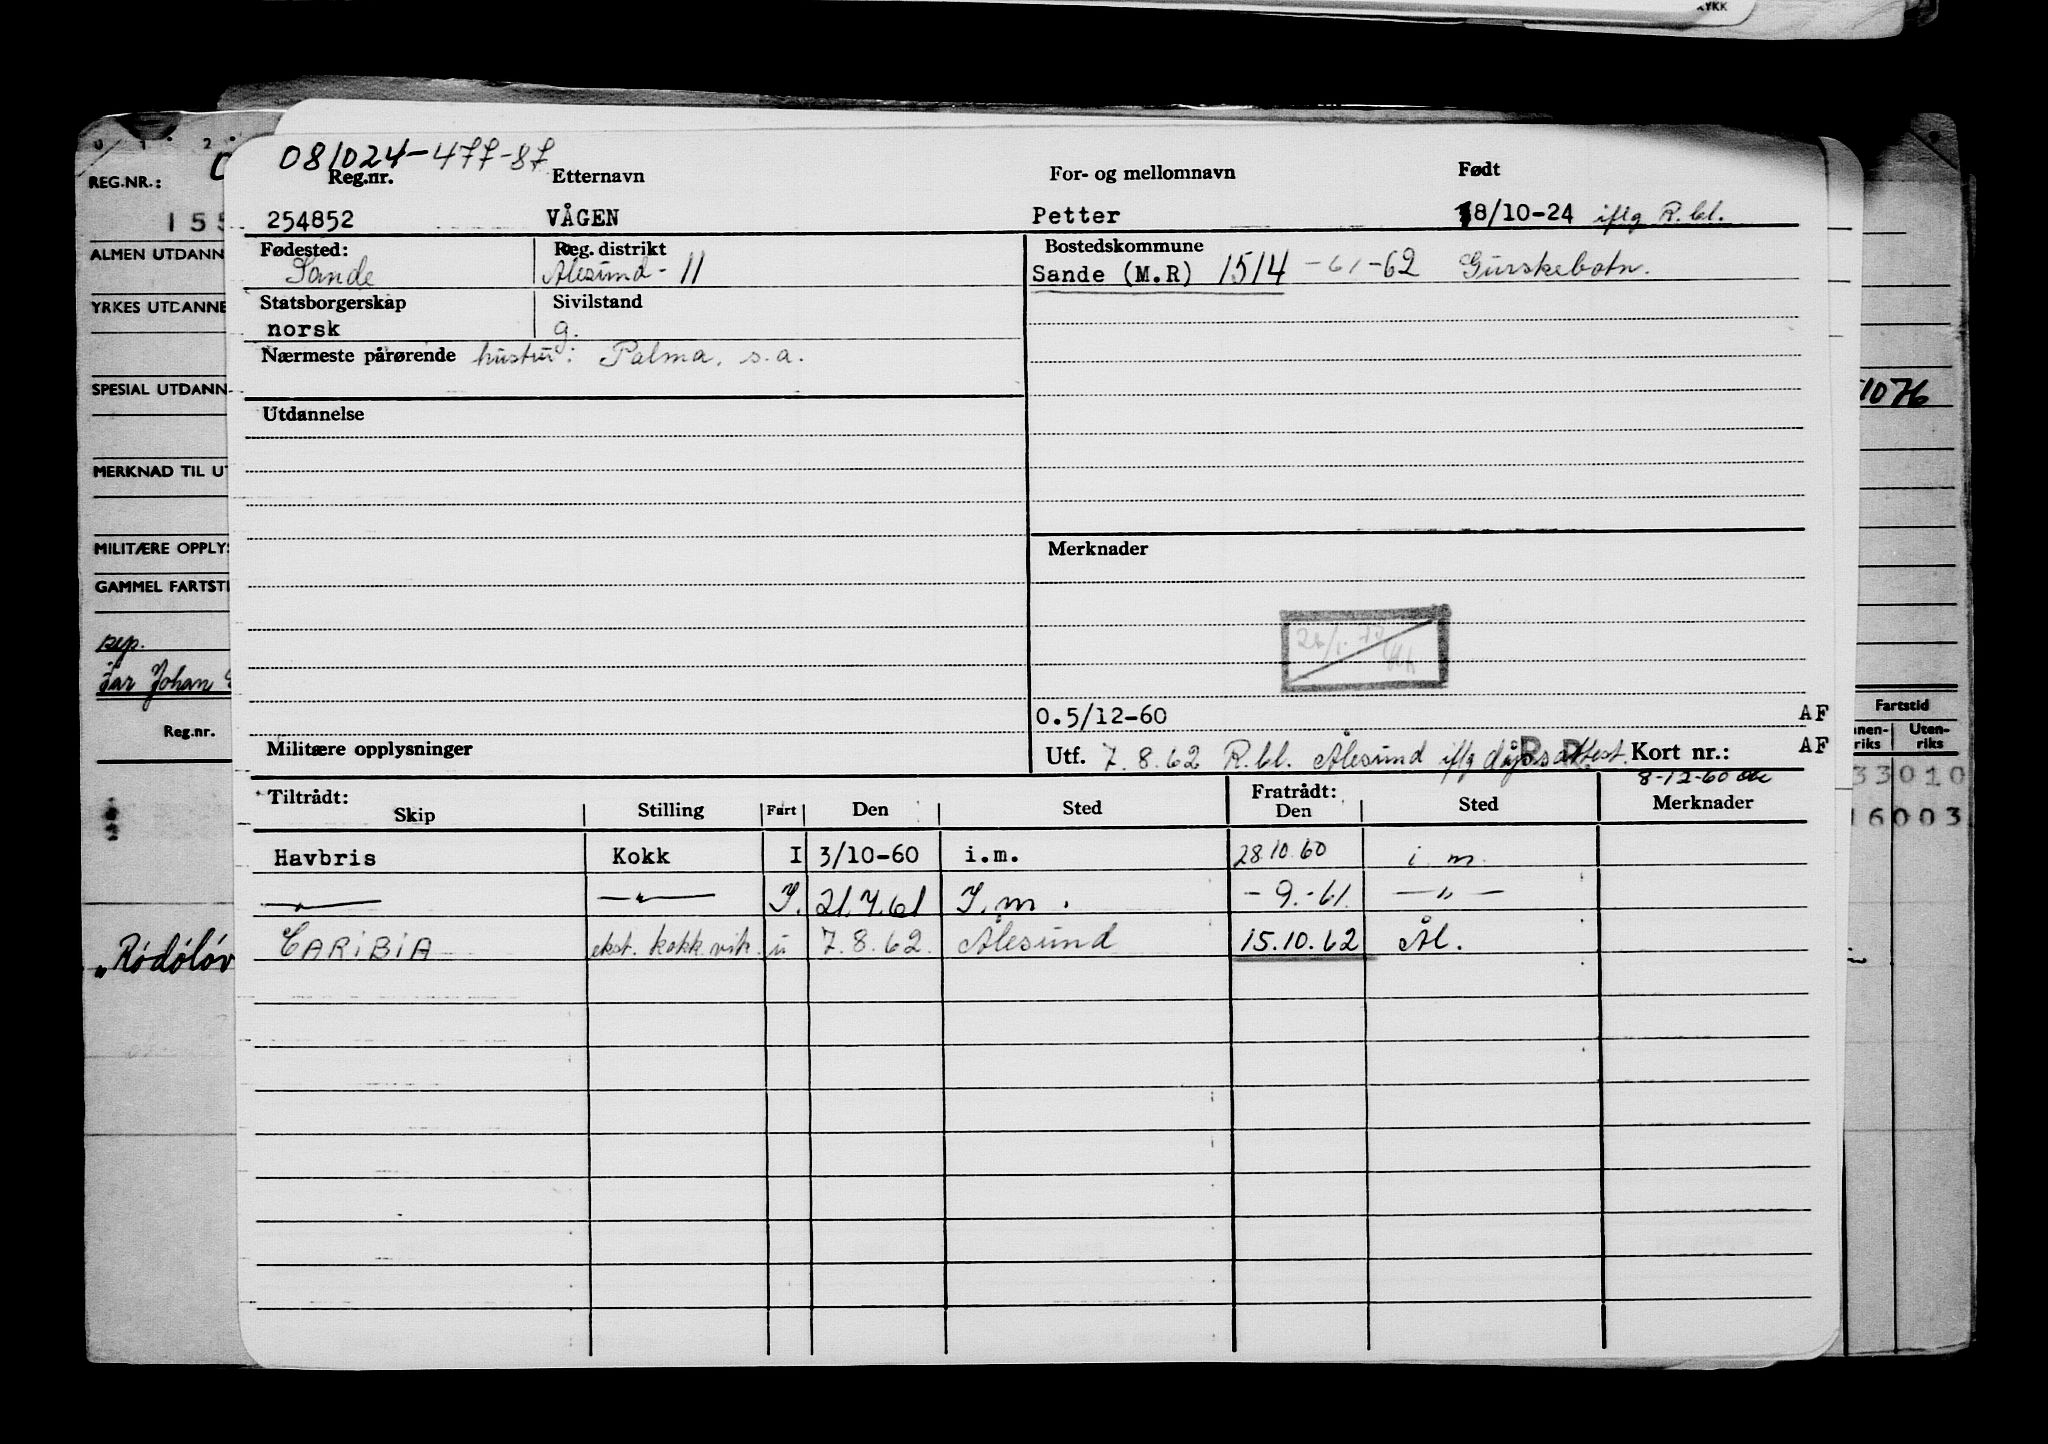 YKK
0 1 2
REG.NR.:
155
ALMEN UTDANN
YRKES UTDANNE
SPESIAL UTDANN
MERKNAD TIL UT
MILITÆRE OPPLYS
GAMMEL FARTSTI
sep.
far Johan
Reg.nr.
"Rödöløv
081024-477-87
Reg.nr. Etternavn For- og mellomnavn Født
254852 VÅGEN Petter 8/10-24 iflg R.bl.
Fødested: Reg. distrikt Bostedskommune
Sande Ålesund - 11 Sande (M.R) 1514 -61-62 Gurskebotn.
Statsborgerskap Sivilstand
norsk g.
Nærmeste pårørende hustru: Palma, s.a.
Utdannelse
Merknader
0.5/12-60 AF
Militære opplysninger Utf. 7.8.62 R.bl. Ålesund iflg dåpsattest. Kort nr.: AF
8-12-60
Tiltrådt: Fratrådt:
Skip Stilling Fart Den Sted Den Sted Merknader
Havbris Kokk I 3/10-60 i.m. 28 10.60 i m.
—"— —"— I. 21.7.61 I.m. - 9.-61. —"—
CARIBIA ekst. kokk vik. u 7.8.62. Ålesund 15.10.62 Ål.
1076
Fartstid
nen-riks Uten-riks
33010
16003